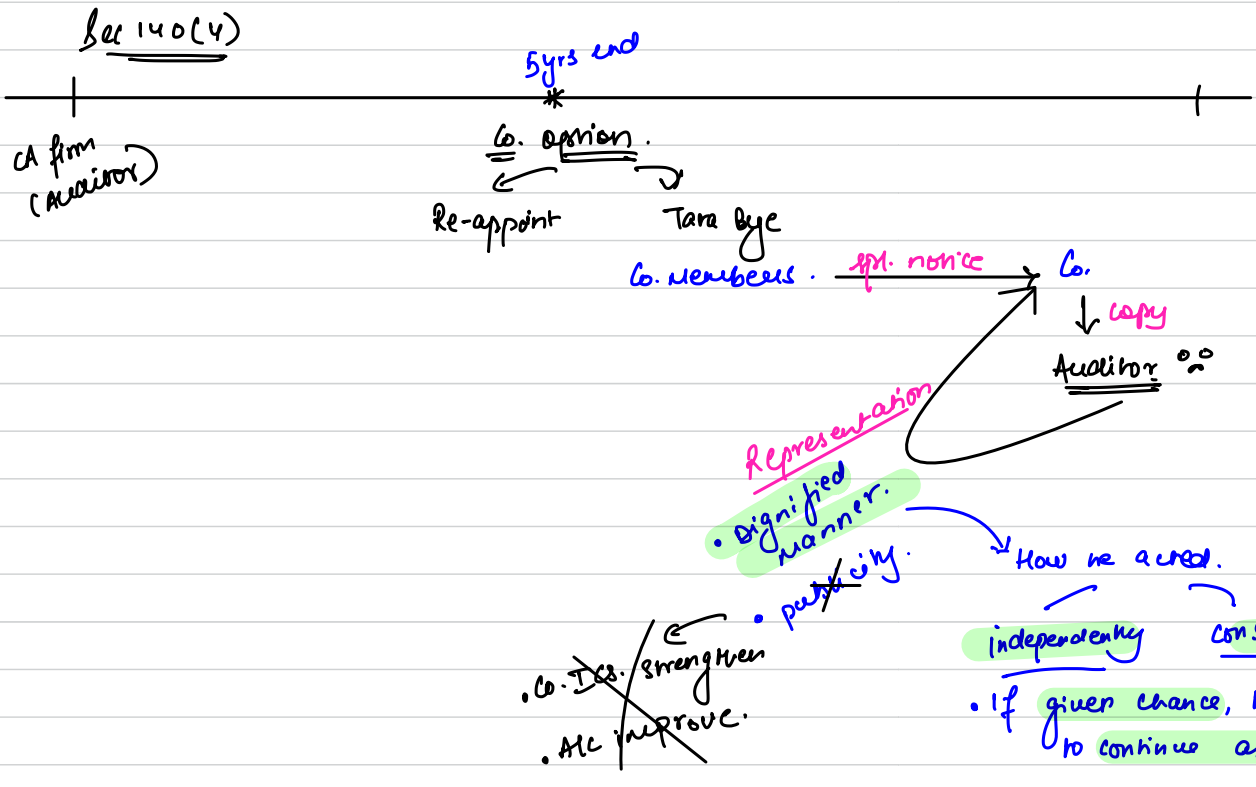 Sec 140(4)
5yrs end
CA firm
(Auditor)
Co. option.
Re-appoint
Tata Bye
Co. Members.
spl. notice
Co.
copy
Auditor
Representation
• Dignified
manner.
• publicity.
How he acted.
independently
cons
• If given chance,
to continue a
strengthen
• Co. ICs.
• A/c improve.